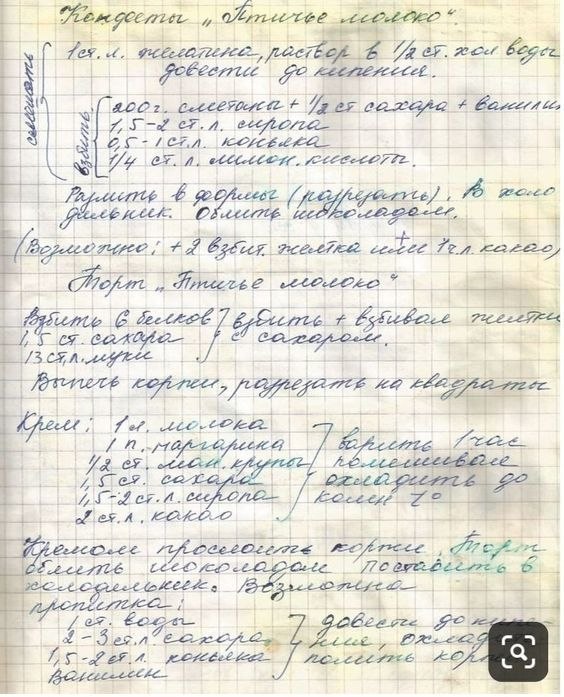 Конфеты „Птичье молоко".
1 ст. л. желатина, раствор в 1/2 ст. хол воды
довести до кипения.
смешать
взбить
200 г. сметаны + 1/2 ст сахара + ванилин
1,5-2 ст. л. сиропа
0,5-1 ст. л. коньяка
1/4 ст. л. лимон. кислоты.
Разлить в формы (разрезать). В холо
дильник. Облить шоколадом.
(Возможно: + 2 взбит. желтка или + 1 ч л. какао)
Торт „Птичье молоко"
Взбить 6 белков
1,5 ст. сахара
13 ст. л. муки
взбить + взбивал желтки
с сахаром.
Выпечь коржи, разрезать на квадраты
Крем: 1 л. молока
1 п. маргарина
1/2 ст. ман. крупы
1,5 ст. сахара
1,5-2 ст. л. сиропа
2 ст. л. какао
варить 1 час
помешивая
охладить до
комн t°
Кремом прослоить коржи. Торт
облить шоколадом поставить в
холодильник. Возможна
пропитка:
1 ст. воды
2-3 ст. л. сахара
1,5-2 ст. л. коньяка
Ванилин
довести до кипе-
ния,
полить